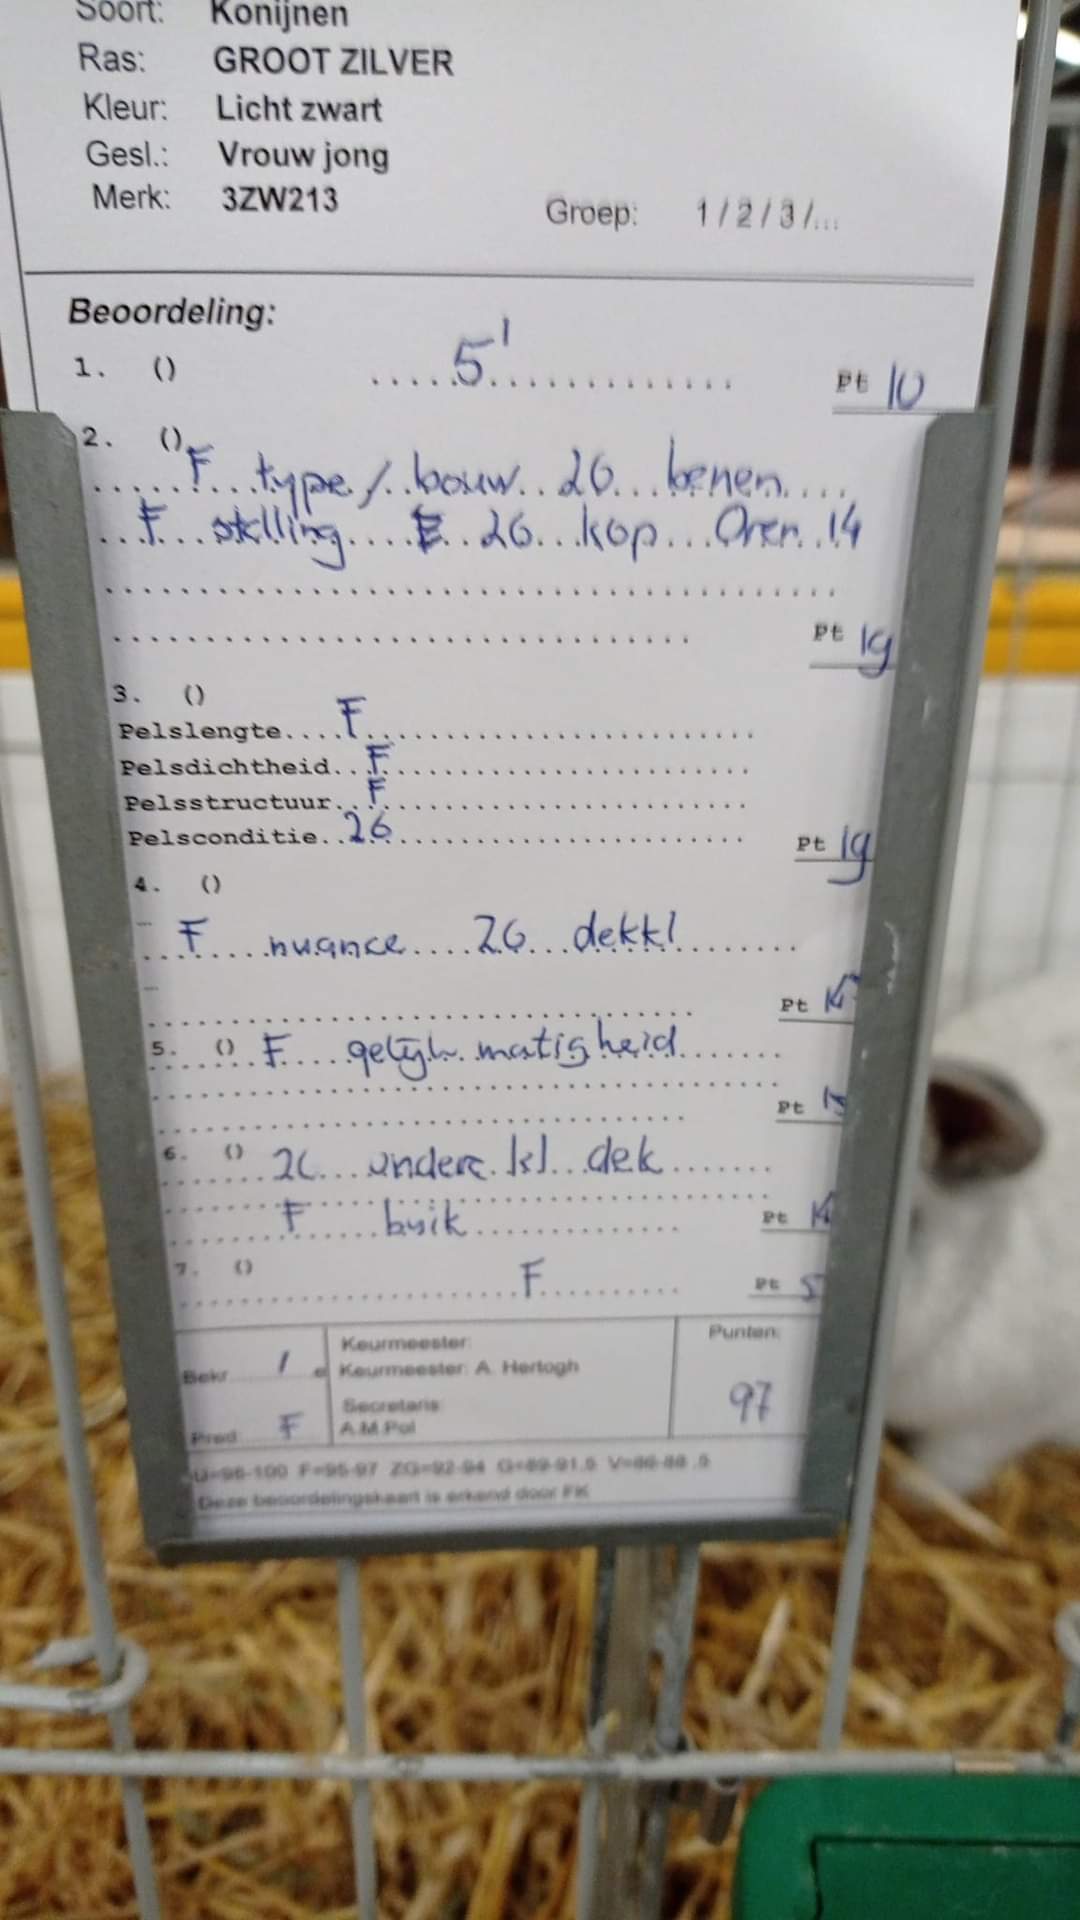 Soort: Konijnen
Ras: GROOT ZILVER
Kleur: Licht zwart
Gesl.: Vrouw jong
Merk: 3ZW213
Groep: 1/2/3/...
Beoordeling:
1. () .....5'............. Pt 10
2. ()
F type/bouw ZG benen
F stelling ZG kop Oren 14
Pt 19
3. ()
Pelslengte....F
Pelsdichtheid..F
Pelsstructuur..F
Pelsconditie..ZG
Pt 19
4. ()
F nuance ZG dekkl
Pt
5. () F gelijkmatigheid
Pt
6. () ZG onder kl dek
F buik Pt
7. () F Pt 5
Bekr. 1 e
Pred. F
Keurmeester:
Keurmeester: A. Hertogh
Secretaris:
A.M.Pol
Punten:
97
F=95-97 ZG=92-94 G=89-91,5
Deze beoordelingskaart is erkend door FK